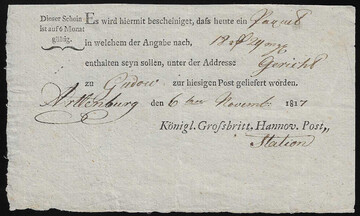 Dieser Schein
ist auf 6 Monat
gültig.
Es wird hiermit bescheiniget, daß heute ein Paquet
in welchem der Angabe nach,
enthalten seyn sollen, unter der Addresse Gericht
zu Gudow zur hiesigen Post geliefert worden.
Artlenburg den 6 ten Novembr 1817
Königl. Großbritt. Hannov. Post„
Station